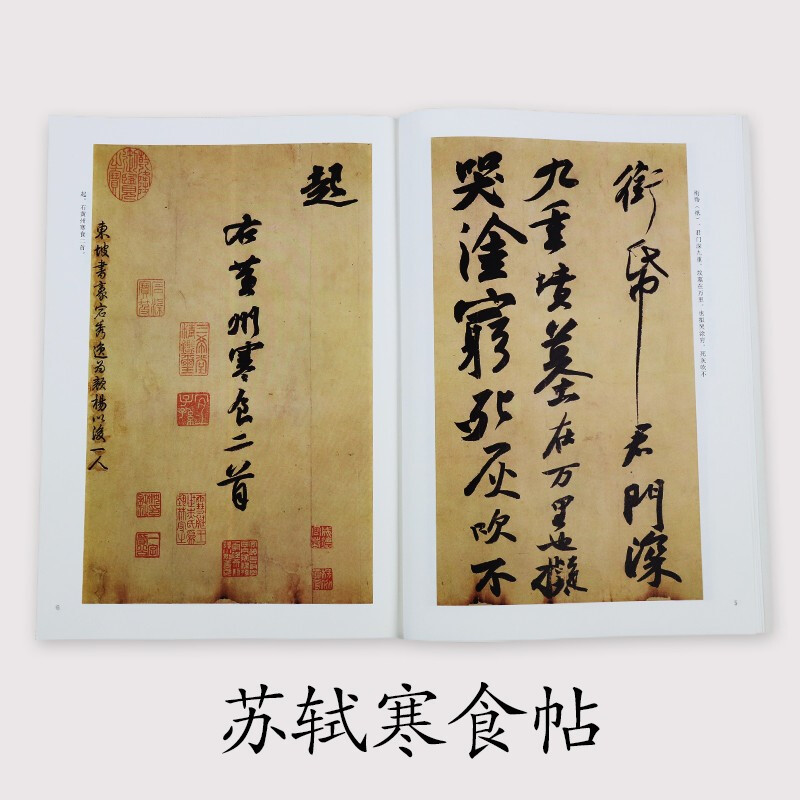 衔帋（纸）。君门深九重，坟墓在万里。也拟哭涂穷，死灰吹不
銜帋君門深
九重墳墓在万里也擬
哭塗窮死灰吹不
5
起
右黃州寒食二首
東坡書豪宕秀逸為顏楊後一人
起。右黄州寒食二首。
6
苏轼寒食帖